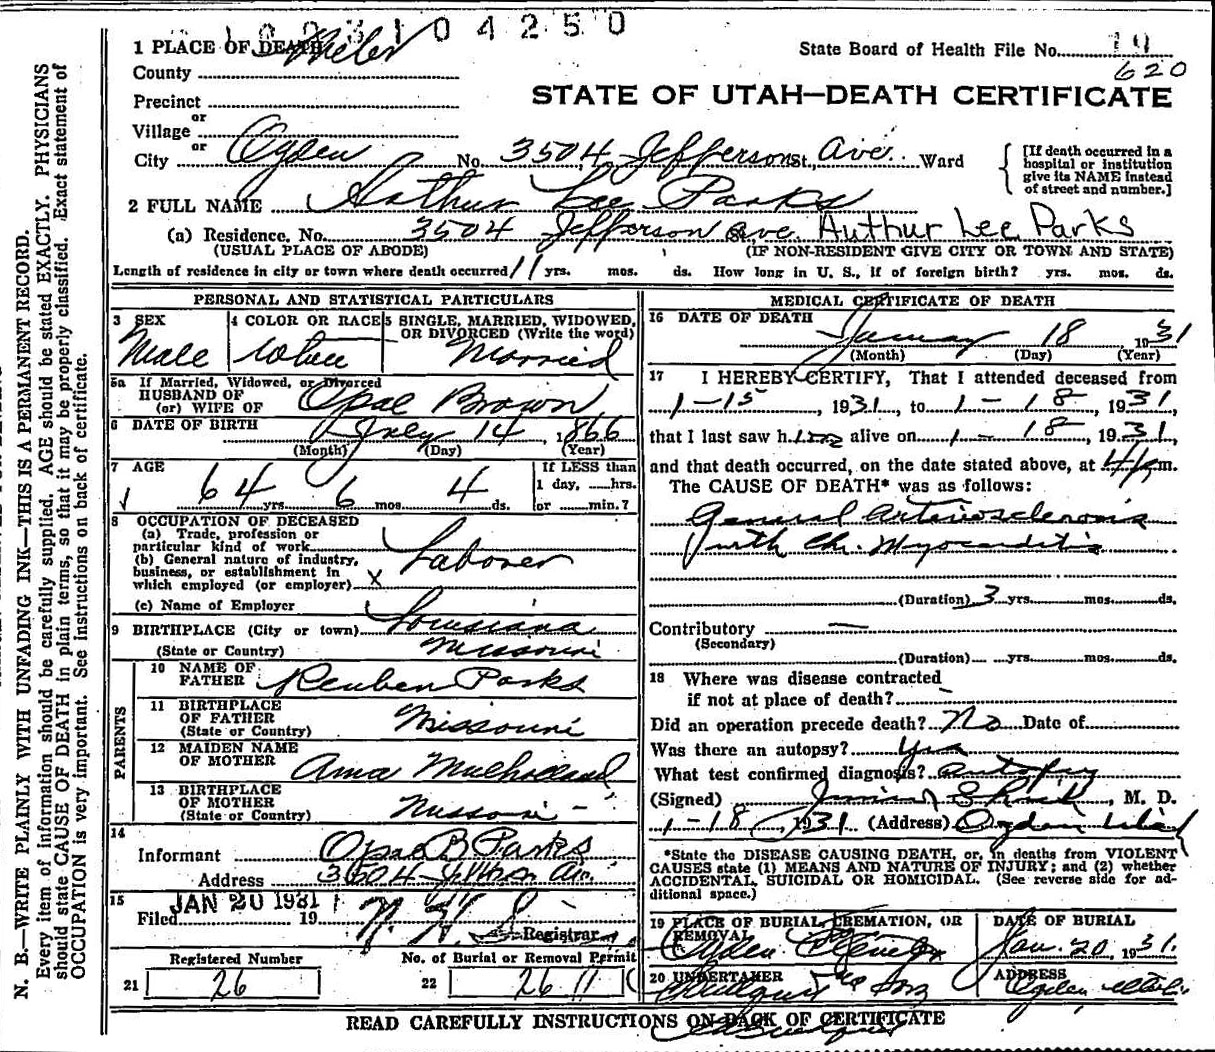 1 0 4 2 5 0
1 PLACE OF DEATH Weber
State Board of Health File No. 10
620
County
Precinct
or
Village
or
STATE OF UTAH—DEATH CERTIFICATE
City Ogden No. 3504 Jefferson St., Ave. Ward
[If death occurred in a hospital or institution give its NAME instead of street and number.]
2 FULL NAME Arthur Lee Parks
(a) Residence, No. 3504 Jefferson ave. Authur Lee Parks
(USUAL PLACE OF ABODE) (IF NON-RESIDENT GIVE CITY OR TOWN AND STATE)
Length of residence in city or town where death occurred 11 yrs. mos. ds. How long in U. S., if of foreign birth? yrs. mos. ds.
PERSONAL AND STATISTICAL PARTICULARS
3 SEX
Male
4 COLOR OR RACE
White
5 SINGLE, MARRIED, WIDOWED, OR DIVORCED (Write the word)
Married
5a If Married, Widowed, or Divorced
HUSBAND OF
(or) WIFE OF Opal Brown
6 DATE OF BIRTH July 14, 1866
(Month) (Day) (Year)
7 AGE
64 yrs 6 mos. 4 ds.
If LESS than
1 day, hrs.
or min.?
8 OCCUPATION OF DECEASED
(a) Trade, profession or
particular kind of work Laborer
(b) General nature of industry,
business, or establishment in
which employed (or employer) x
(c) Name of Employer
9 BIRTHPLACE (City or town) Louisiana
(State or Country) Missouri
PARENTS
10 NAME OF
FATHER Reuben Parks
11 BIRTHPLACE
OF FATHER
(State or Country) Missouri
12 MAIDEN NAME
OF MOTHER Ama Mulholland
13 BIRTHPLACE
OF MOTHER
(State or Country) Missouri -
14
Informant Opal B Parks
Address 3504 Av.
15
Filed JAN 20 1931 19
Registrar
Registered Number No. of Burial or Removal Permit
21 26 22 26 11
MEDICAL CERTIFICATE OF DEATH
16 DATE OF DEATH
January 18 1931
(Month) (Day) (Year)
17 I HEREBY CERTIFY, That I attended deceased from
1-15, 1931, to 1-18, 1931,
that I last saw him alive on 1-18, 1931,
and that death occurred, on the date stated above, at m.
The CAUSE OF DEATH* was as follows:
General Arteriosclerosis
with Chr. Myocarditis
(Duration) 3 yrs. mos. ds.
Contributory —
(Secondary)
(Duration) yrs. mos. ds.
18 Where was disease contracted
if not at place of death? -
Did an operation precede death? No Date of
Was there an autopsy? Yes
What test confirmed diagnosis? autopsy
(Signed) , M. D.
1-18, 1931 (Address) Ogden Utah
*State the DISEASE CAUSING DEATH, or, in deaths from VIOLENT
CAUSES state (1) MEANS AND NATURE OF INJURY; and (2) whether
ACCIDENTAL, SUICIDAL OR HOMICIDAL. (See reverse side for ad-
ditional space.)
19 PLACE OF BURIAL, CREMATION, OR
REMOVAL
Ogden
DATE OF BURIAL
Jan. 20, 1931.
20 UNDERTAKER
Sons
ADDRESS
Ogden Utah
READ CAREFULLY INSTRUCTIONS ON BACK OF CERTIFICATE
N. B.—WRITE PLAINLY WITH UNFADING INK—THIS IS A PERMANENT RECORD.
Every item of information should be carefully supplied. AGE should be stated EXACTLY. PHYSICIANS
should state CAUSE OF DEATH in plain terms, so that it may be properly classified. Exact statement of
OCCUPATION is very important. See instructions on back of certificate.